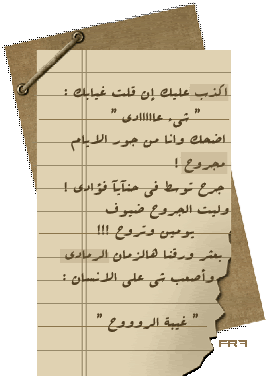 اكذب عليك إن قلت غيابك :
" شي عااااادي "
اضحك وانا من جور الايام
مجروح !
جرح توسط في حنآيآ فؤادي !
وليت الجروح ضيوف
يومين وتروح !!!
بعثر ورقنا هالزمان الرمادي
وأصعب شي على الانسان :
" غيبة الروووح "